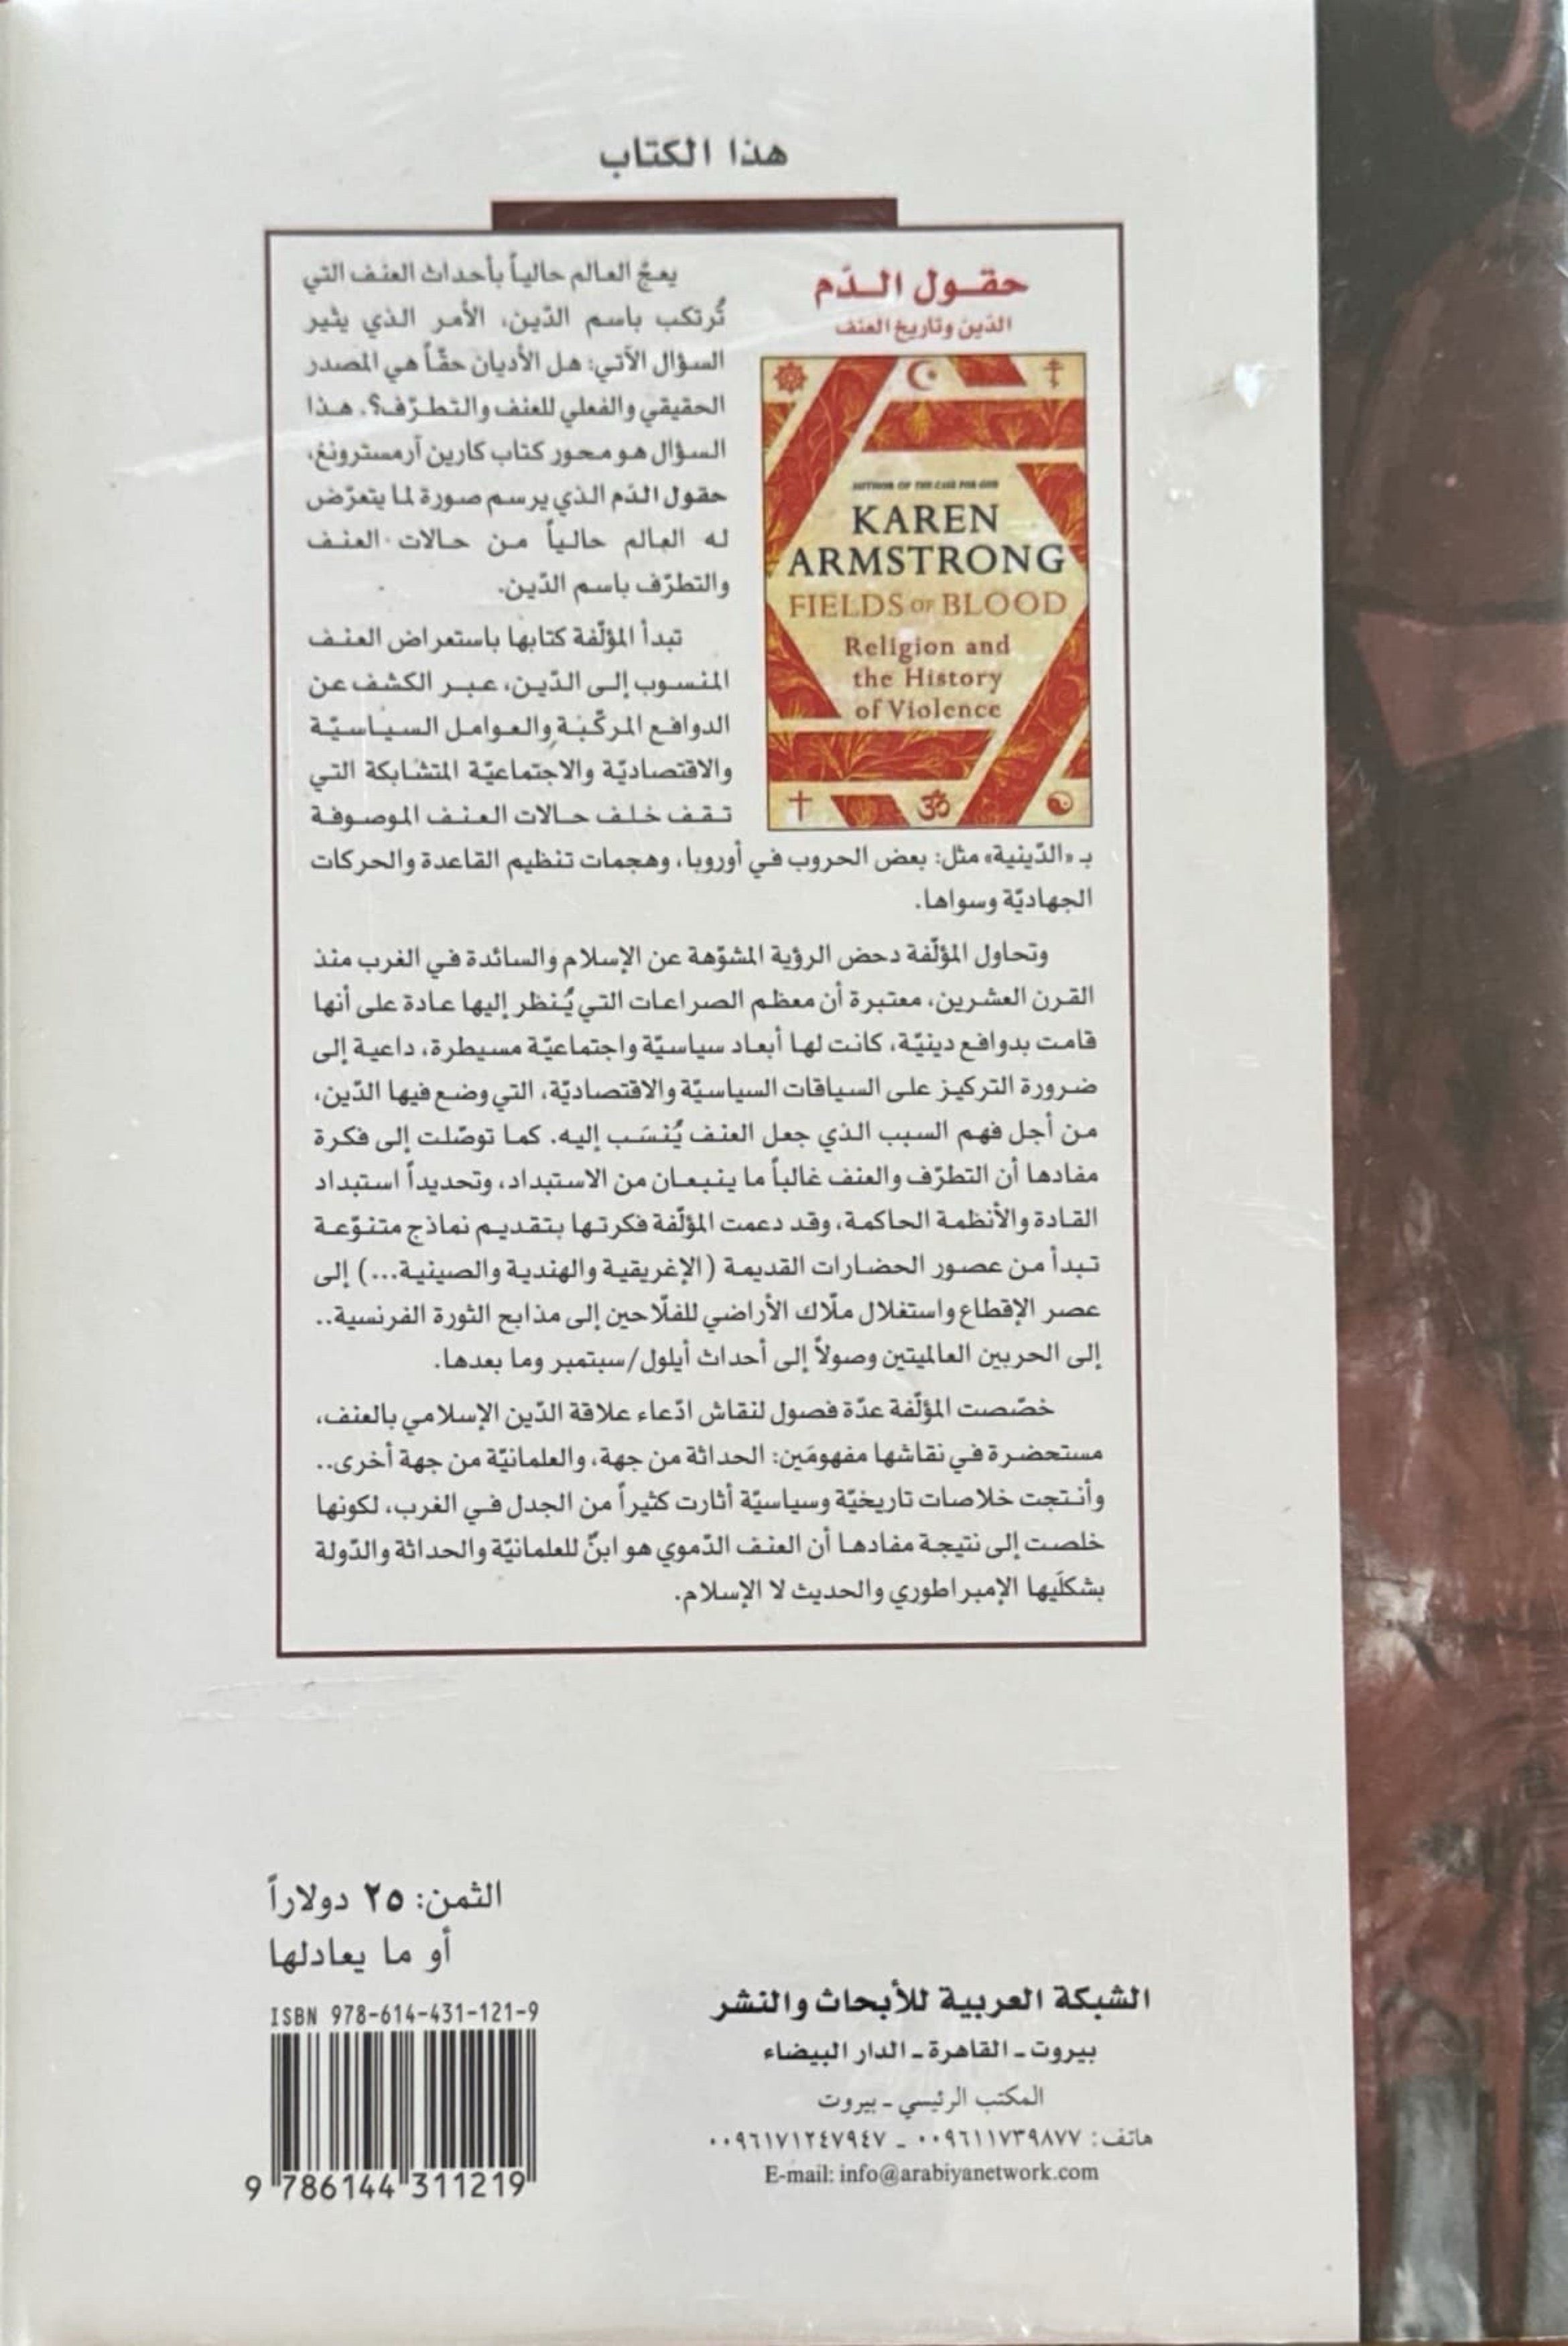 هذا الكتاب
حقول الدّم
الدّين وتاريخ العنف
AUTHOR OF THE CASE FOR GOD
KAREN
ARMSTRONG
FIELDS OF BLOOD
Religion and
the History
of Violence
يعجّ العالم حالياً بأحداث العنف التي
تُرتكب باسم الدّين، الأمر الذي يثير
السؤال الآتي: هل الأديان حقّاً هي المصدر
الحقيقي والفعلي للعنف والتطرّف؟. هذا
السؤال هو محور كتاب كارين آرمسترونغ،
حقول الدّم الذي يرسم صورة لما يتعرّض
له العالم حالياً من حالات العنف
والتطرّف باسم الدّين.
تبدأ المؤلّفة كتابها باستعراض العنف
المنسوب إلى الدّين، عبر الكشف عن
الدوافع المركّبة والعوامل السياسيّة
والاقتصاديّة والاجتماعيّة المتشابكة التي
تقف خلف حالات العنف الموصوفة
بـ «الدّينية» مثل: بعض الحروب في أوروبا، وهجمات تنظيم القاعدة والحركات
الجهاديّة وسواها.
وتحاول المؤلّفة دحض الرؤية المشوّهة عن الإسلام والسائدة في الغرب منذ
القرن العشرين، معتبرة أن معظم الصراعات التي يُنظر إليها عادة على أنها
قامت بدوافع دينيّة، كانت لها أبعاد سياسيّة واجتماعيّة مسيطرة، داعية إلى
ضرورة التركيز على السياقات السياسيّة والاقتصاديّة، التي وضع فيها الدّين،
من أجل فهم السبب الذي جعل العنف يُنسَب إليه. كما توصّلت إلى فكرة
مفادها أن التطرّف والعنف غالباً ما ينبعان من الاستبداد، وتحديداً استبداد
القادة والأنظمة الحاكمة، وقد دعمت المؤلّفة فكرتها بتقديم نماذج متنوّعة
تبدأ من عصور الحضارات القديمة (الإغريقية والهندية والصينية...) إلى
عصر الإقطاع واستغلال ملّاك الأراضي للفلّاحين إلى مذابح الثورة الفرنسية..
إلى الحربين العالميتين وصولاً إلى أحداث أيلول/سبتمبر وما بعدها.
خصّصت المؤلّفة عدّة فصول لنقاش ادّعاء علاقة الدّين الإسلامي بالعنف،
مستحضرة في نقاشها مفهومَين: الحداثة من جهة، والعلمانيّة من جهة أخرى..
وأنتجت خلاصات تاريخيّة وسياسيّة أثارت كثيراً من الجدل في الغرب، لكونها
خلصت إلى نتيجة مفادها أن العنف الدّموي هو ابنٌ للعلمانيّة والحداثة والدّولة
بشكلَيها الإمبراطوري والحديث لا الإسلام.
الثمن: ٢٥ دولاراً
أو ما يعادلها
ISBN 978-614-431-121-9
9 786144 311219
الشبكة العربية للأبحاث والنشر
بيروت - القاهرة - الدار البيضاء
المكتب الرئيسي - بيروت
هاتف: ٠٠٩٦١١٧٣٩٨٧٧ - ٠٠٩٦١٧١٢٤٧٩٤٧
E-mail: info@arabiyanetwork.com